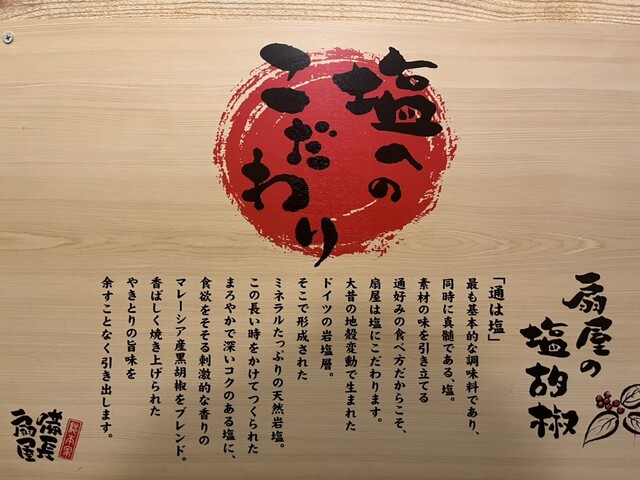 塩への
こだわり
扇屋の
塩胡椒
「通は塩」
最も基本的な調味料であり、
同時に真髄である、塩。
素材の味を引き立てる
通好みの食べ方だからこそ、
扇屋は塩にこだわります。
大昔の地殻変動で生まれた
ドイツの岩塩層。
そこで形成された
ミネラルたっぷりの天然岩塩。
この長い時をかけてつくられた
まろやかで深いコクのある塩に、
食欲をそそる刺激的な香りの
マレーシア産黒胡椒をブレンド。
香ばしく焼き上げられた
やきとりの旨味を
余すことなく引き出します。
備長
扇屋